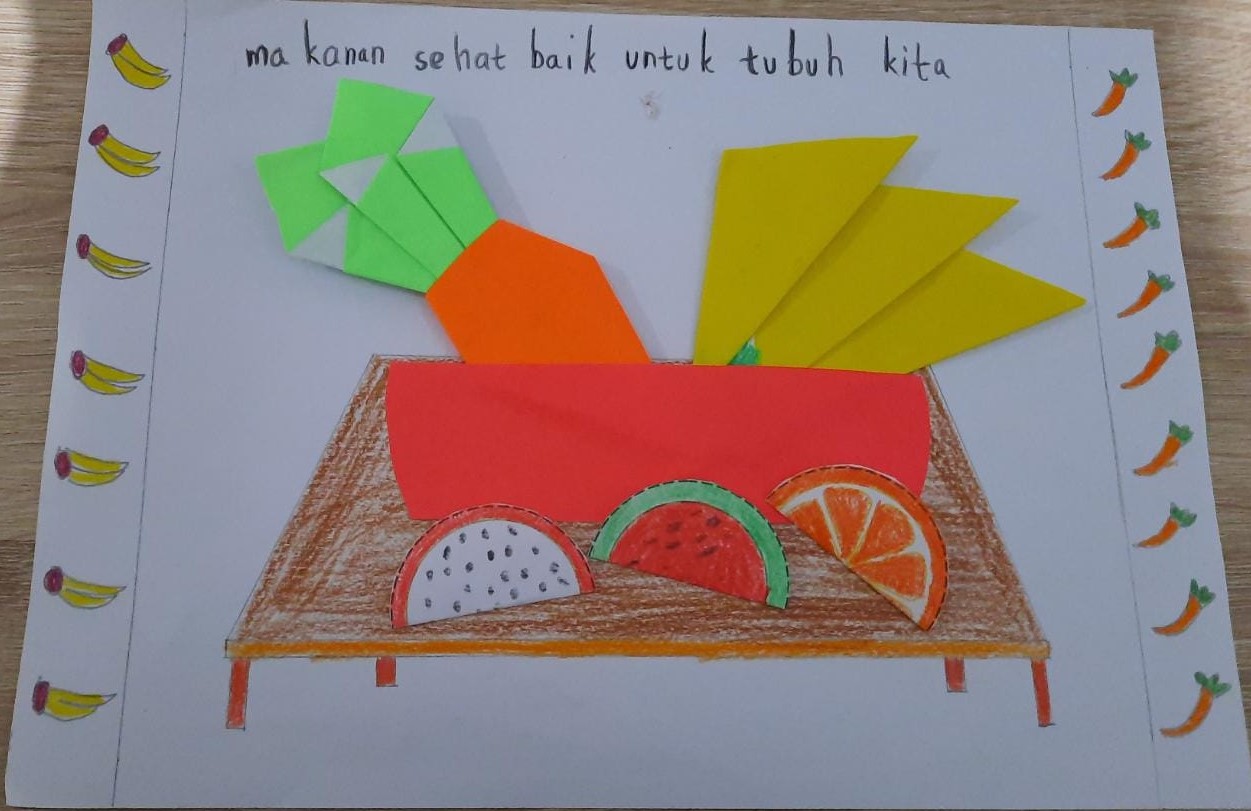 makanan sehat baik untuk tubuh kita